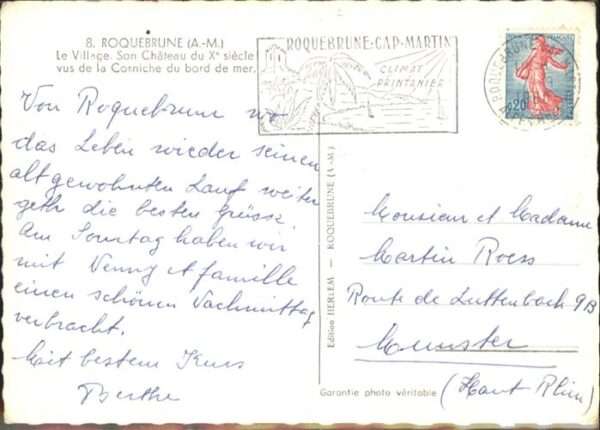 8. ROQUEBRUNE (A.-M.)
Le Village. Son Château du Xe siècle
vus de la Corniche du bord de mer.
ROQUEBRUNE-CAP-MARTIN
CLIMAT
PRINTANIER
0,20
Von Roquebrune wo
das Leben wieder seinen
altgewohnten Lauf weiter
geth die besten Grüsse.
Am Sonntag haben wir
mit Venny et famille
einen schönen Nachmittag
verbracht.
Mit bestem Kuss
Berthe
Edition HERLEM — ROQUEBRUNE (A.-M.)
Monsieur et Madame
Martin Roess
Route de Luttenbach 9B
Munster
(Haut Rhin)
Garantie photo véritable